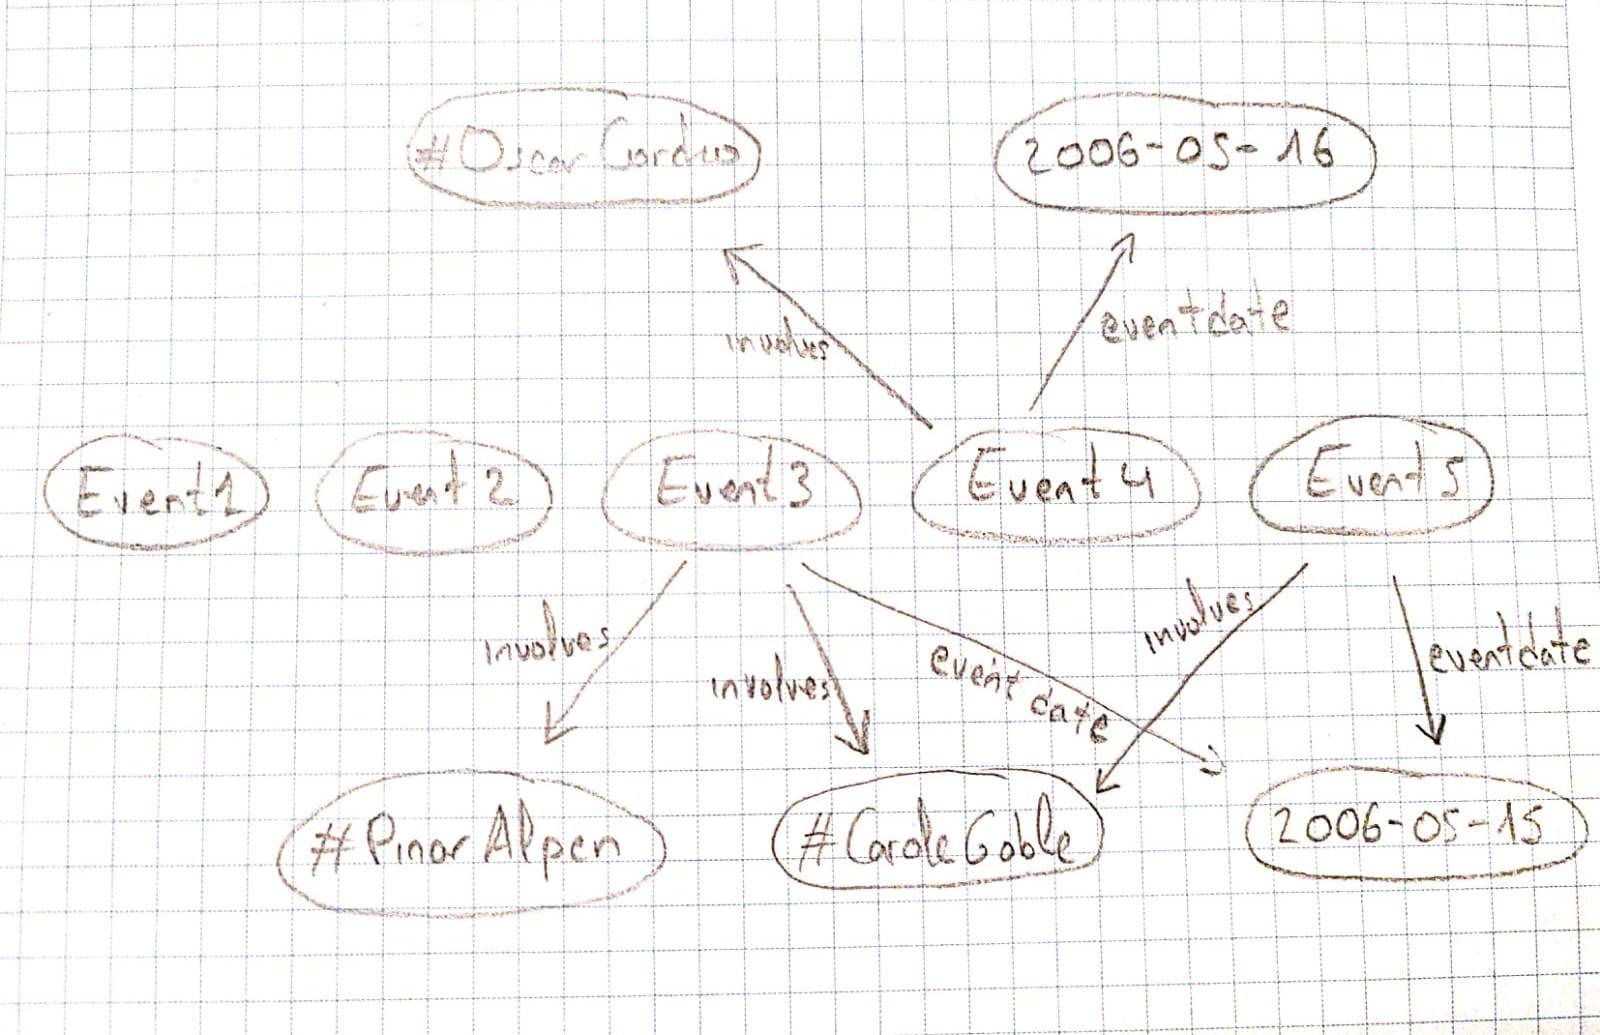 #Oscar Cordus
2006-05-16
involves
eventdate
Event1
Event 2
Event3
Event 4
Event 5
involves
involves
event date
involves
eventdate
#Pinar Alpen
#Carole Goble
2006-05-15